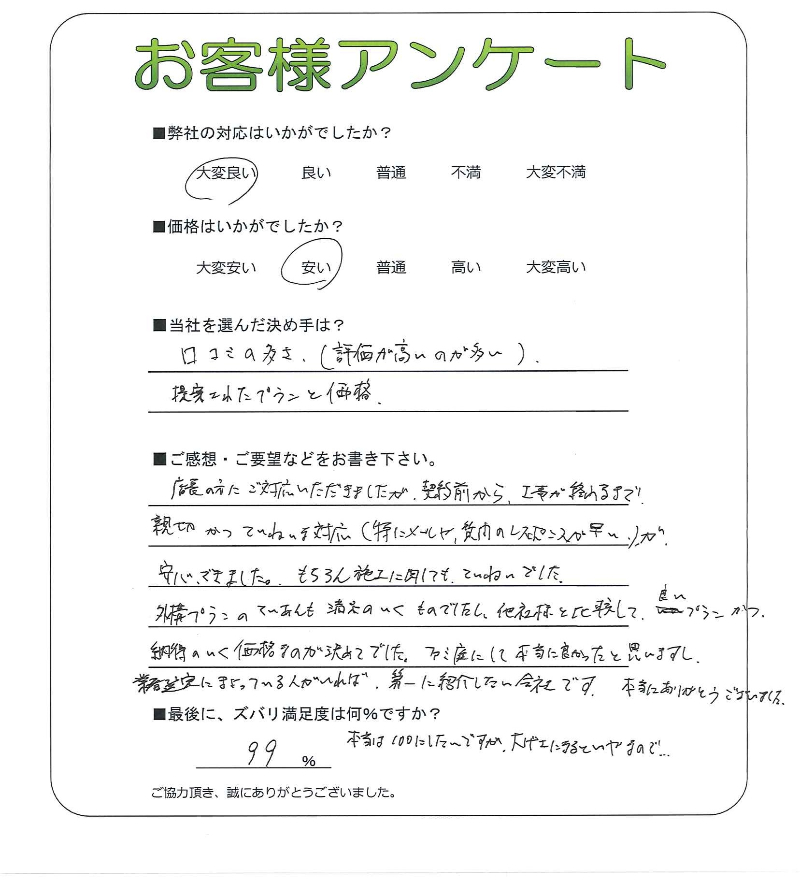 お客様アンケート
■弊社の対応はいかがでしたか？
大変良い 良い 普通 不満 大変不満
■価格はいかがでしたか？
大変安い 安い 普通 高い 大変高い
■当社を選んだ決め手は？
口コミの多さ、(評価が高いのが多い)。
提案されたプランと価格。
■ご感想・ご要望などをお書き下さい。
店長の方にご対応いただきましたが、契約前から、工事が終わるまで
親切かつていねいな対応(特にメールや、質問のレスポンスが早い。)が、
安心できました。もちろん施工に関しても、ていねいでした。
外構プランのていあんも満足のいくものでしたし、他社様と比較して、良いプランかつ、
納得のいく価格なのが決めてでした。ファミ庭にして本当に良かったと思いますし、
業者選定にまよっている人がいれば、第一に紹介したい会社です。本当にありがとうございました。
■最後に、ズバリ満足度は何％ですか？
99 % 本当は100にしたいですが、
ご協力頂き、誠にありがとうございました。